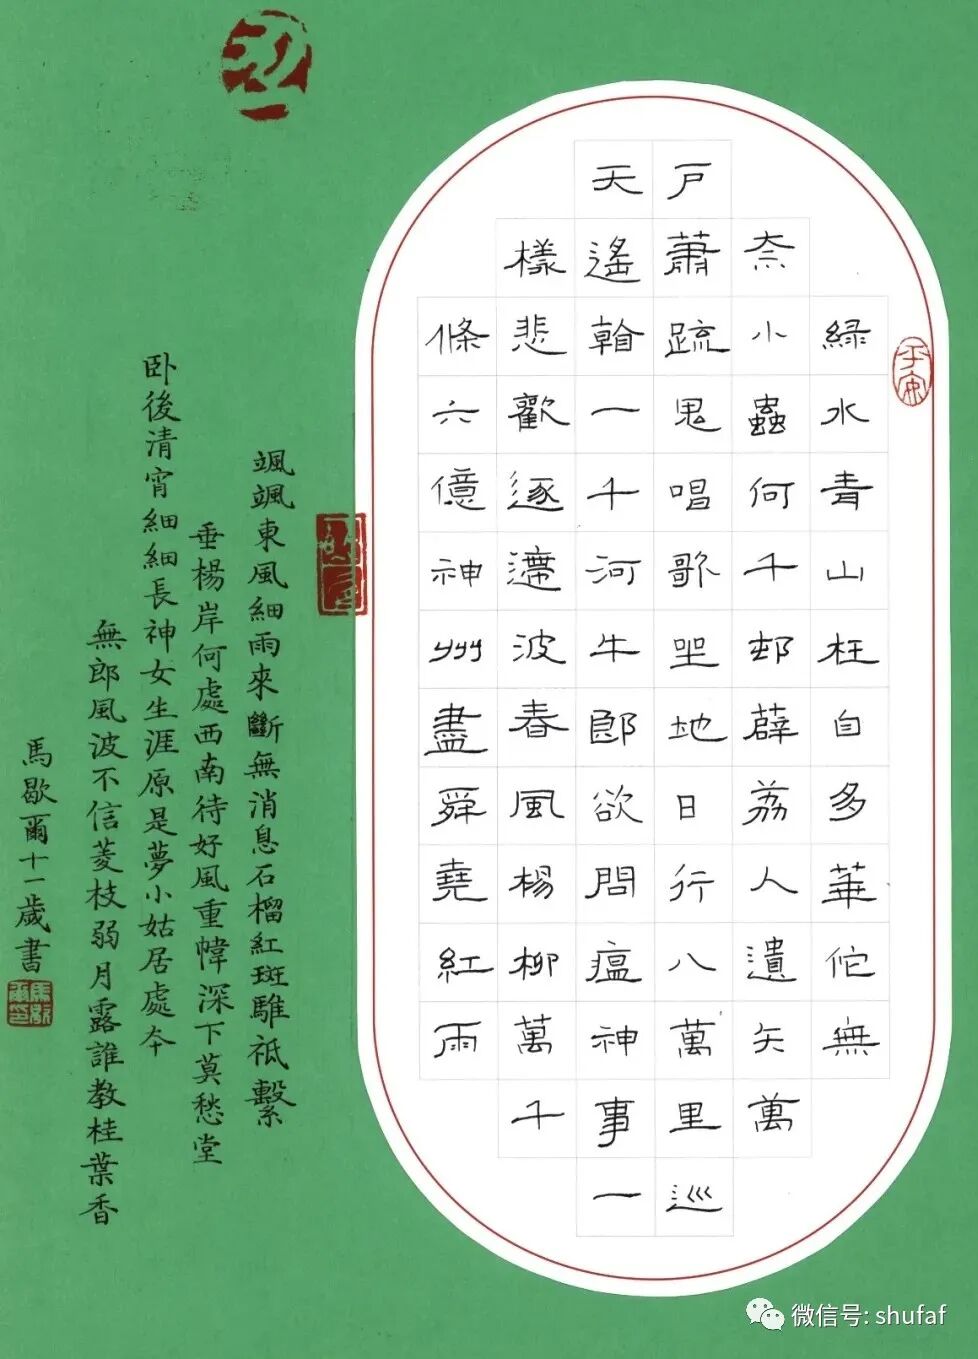 緑水青山枉自多華佗無
奈小蟲何千邨薜荔人遺矢萬
戶蕭疏鬼唱歌坐地日行八萬里巡
天遙看一千河牛郎欲問瘟神事一
樣悲歡逐遰波春風楊柳萬千
條六億神州盡舜堯紅雨
平安
颯颯東風細雨來斷無消息石榴紅斑騅祗繫
垂楊岸何處西南待好風重幃深下莫愁堂
卧後清宵細細長神女生涯原是夢小姑居處夲
無郎風波不信菱枝弱月露誰教桂葉香
馬歇爾十一歲書
微信号: shufaf